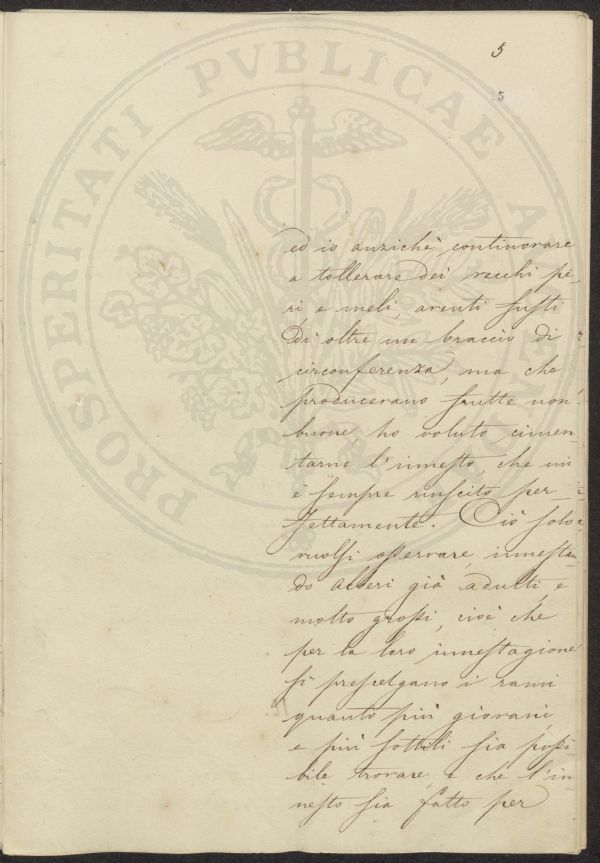 5
5
PROSPERITATI PVBLICAE A
ed io anzichè, continovare
a tollerare dei vecchi pe-
ri, e meli, aventi fusti
di oltre un braccio di
circonferenza, ma che
producevano frutte non
buone, ho voluto cimen-
tarne l'innesto che mi
è sempre riuscito per-
fettamente. Ciò solo
vuolsi osservare, innestan-
do alberi già adulti, e
molto grossi, cioè che
per la loro innestagione
si prescelgano i rami
quanto più giovani,
e più sottili sia possi
bile trovare, e che l'in-
nesto sia fatto per